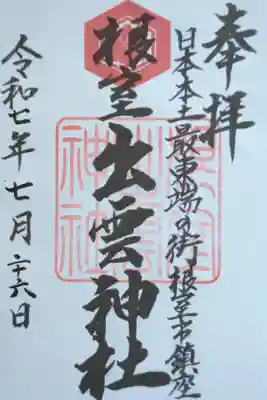 奉拝
日本本土最東端の街根室市鎮座
根室出雲神社
令和七年七月二十六日